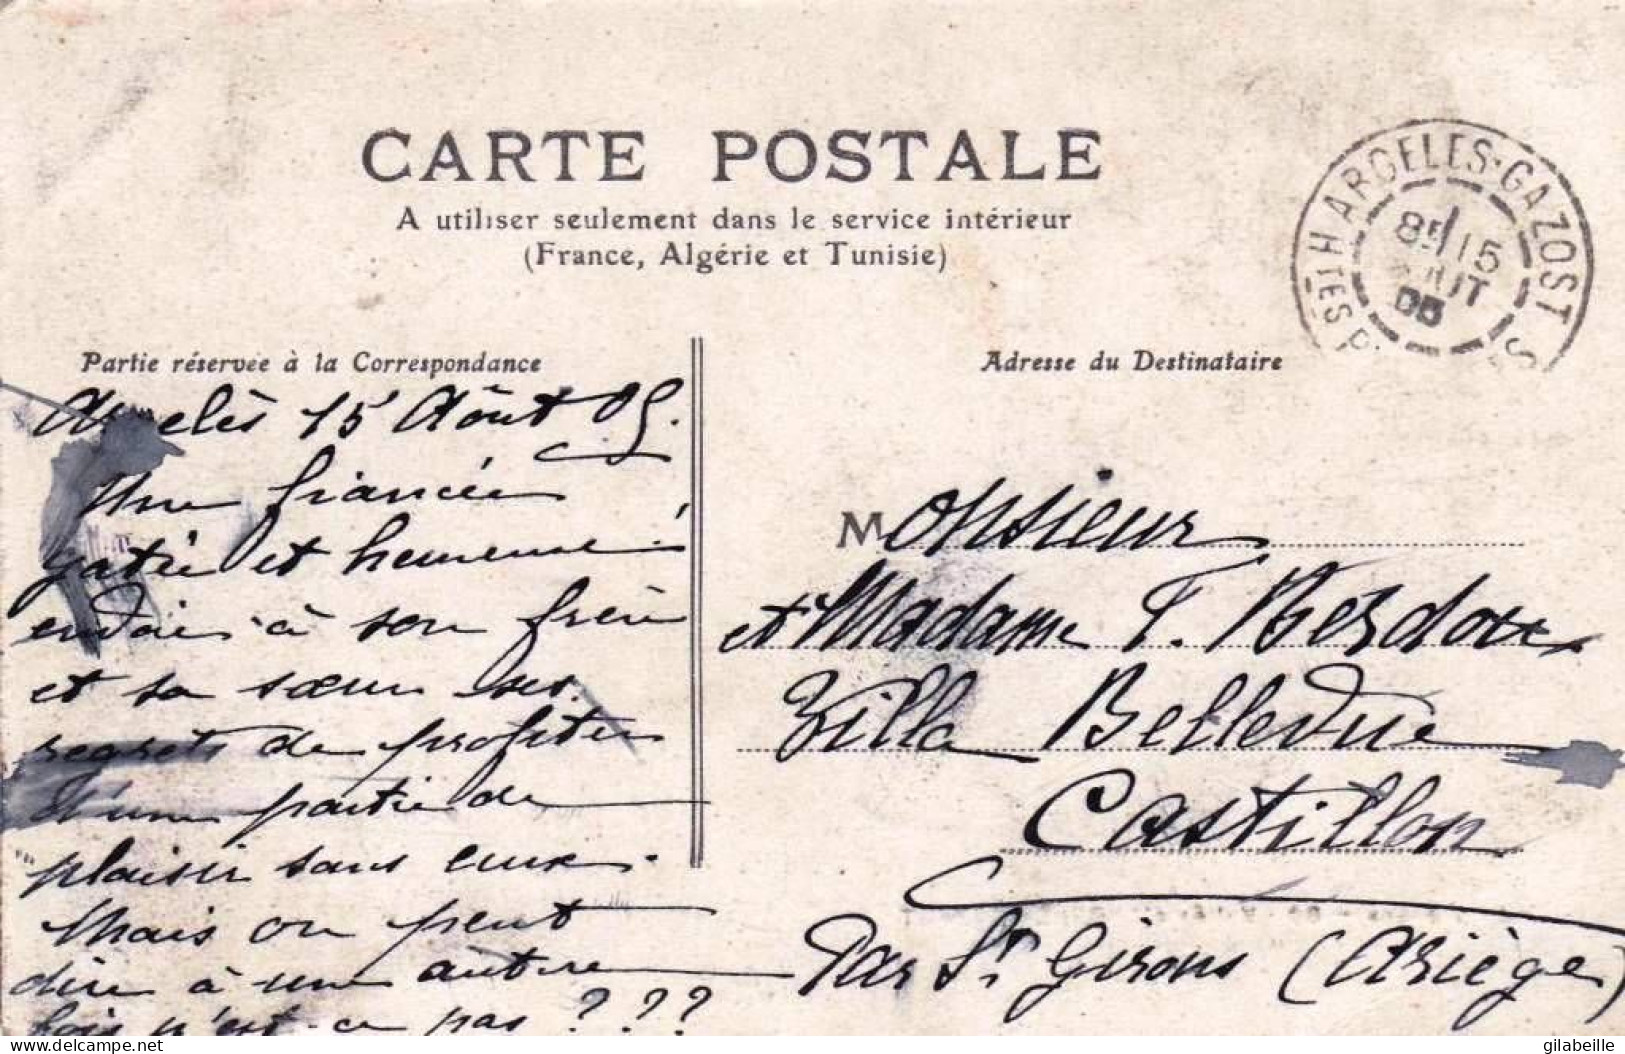 CARTE POSTALE
A utiliser seulement dans le service intérieur
(France, Algérie et Tunisie)
ARGELES-GAZOST
HTES P
15
AOUT
05
Partie réservée à la Correspondance
Argelès 15 Aôut 05.
Une fiancée
gatée et heureuse
envoie à son frère
et sa sœur ses
regrets de profiter
d'une partie de
plaisir sans eux.
Mais on peut
dire à une autre
fois n'est-ce pas ???
Adresse du Destinataire
Monsieur
et Madame F.
Villa Bellevue
Castillon
Par St Girons (Ariège)
delcampe.net
gilabeille